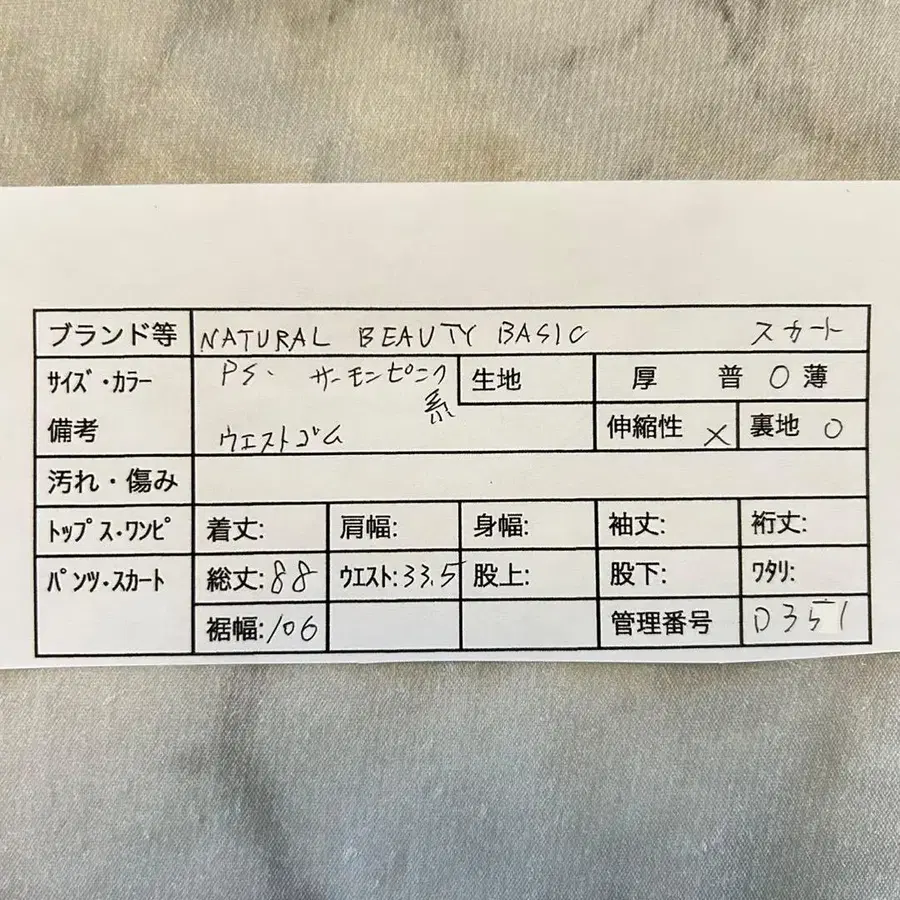 ブランド等 NATURAL BEAUTY BASIC スカート
サイズ・カラー PS. サーモンピンク系 生地 厚 普 〇 薄
備考 ウエストゴム 伸縮性 × 裏地 〇
汚れ・傷み
トップス・ワンピ 着丈: 肩幅: 身幅: 袖丈: 裄丈:
パンツ・スカート 総丈:88 ウエスト:33.5 股上: 股下: ワタリ:
裾幅:106 管理番号 D351